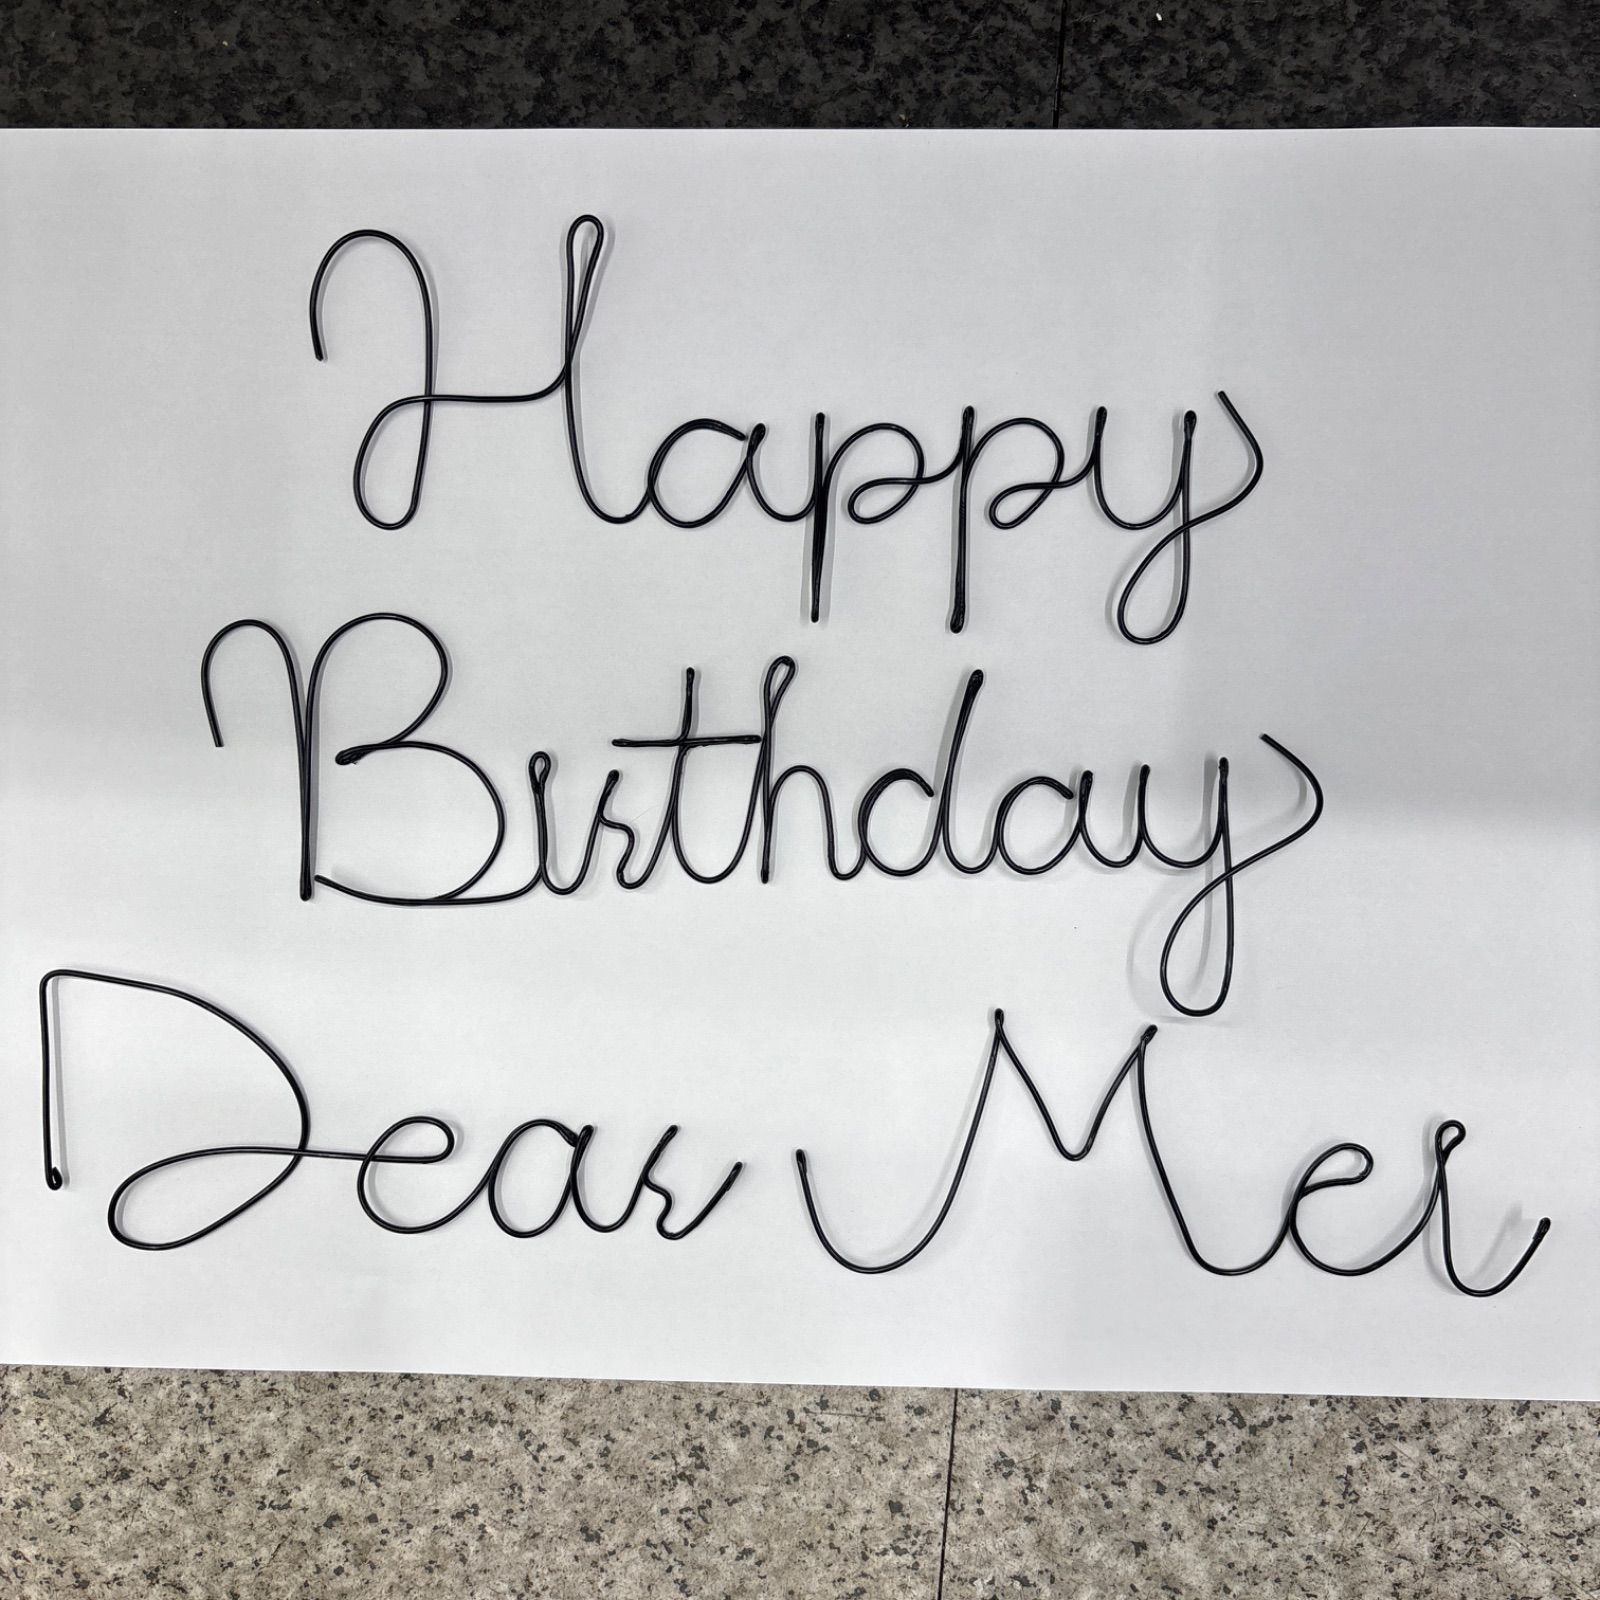 Happy
Birthday
Dear Mei